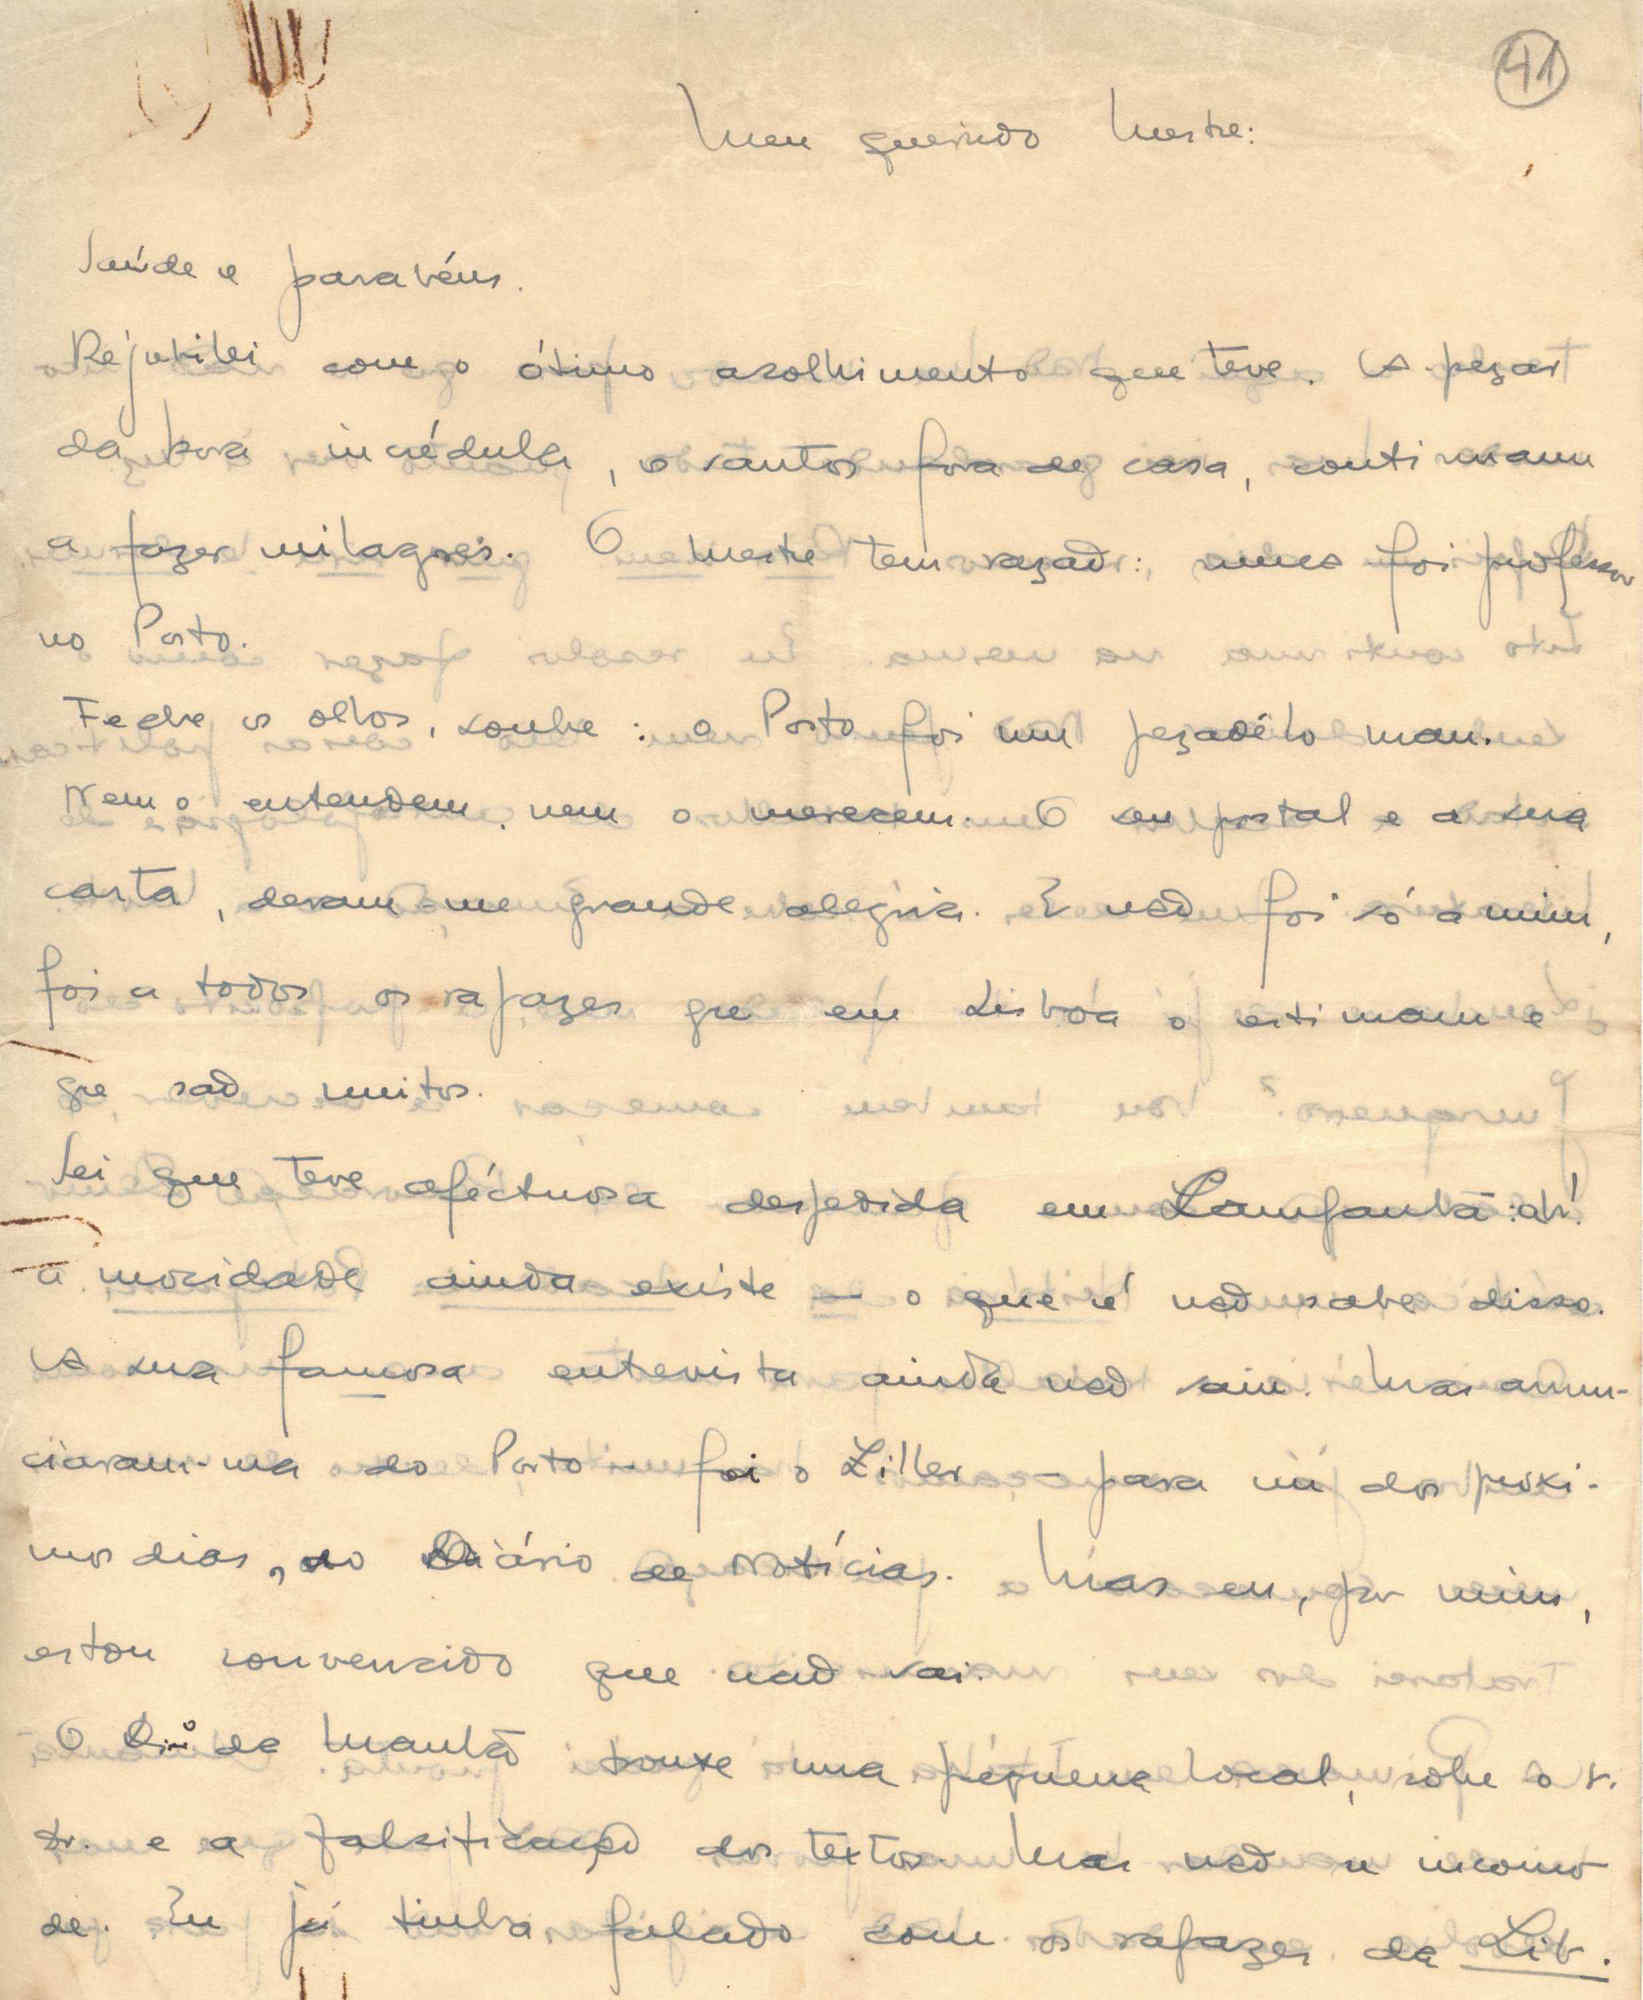 41
Meu querido Mestre:
Saúde e parabéns.
Rejubilei com o ótimo acolhimento que teve. A pezar
da hora incrédula, os santos fora de casa, continuam
a fazer milagres. O Mestre tem razaõ: nunca foi professor
no Porto.
Feche os olhos, sonhe: o Porto foi um pezadêlo mau.
Nem o entendem, nem o merecem. O seu postal e a sua
carta, deram-me grande alegria. E naõ foi só a mim,
foi a todos os rapazes que em Lisbôa o estimam e
que saõ muitos.
Sei que teve aféctuosa despedida em Campanhã: ah!
a mocidade ainda existe — o que é naõ sabe disso.
A sua famosa entrevista ainda naõ saiu. Mas anun-
ciaram-ma do Porto — foi o Ziller — para um dos proxi-
mos dias, no Diário de Notícias. Mas eu, por mim,
estou convencido que naõ vai.
O Diº da Manhã trouxe uma péquena local, sobre o s.
dr. e a falsificaçaõ dos textos. Mas naõ se incomo
de. Eu já tinha falado com os rapazes da Lib.